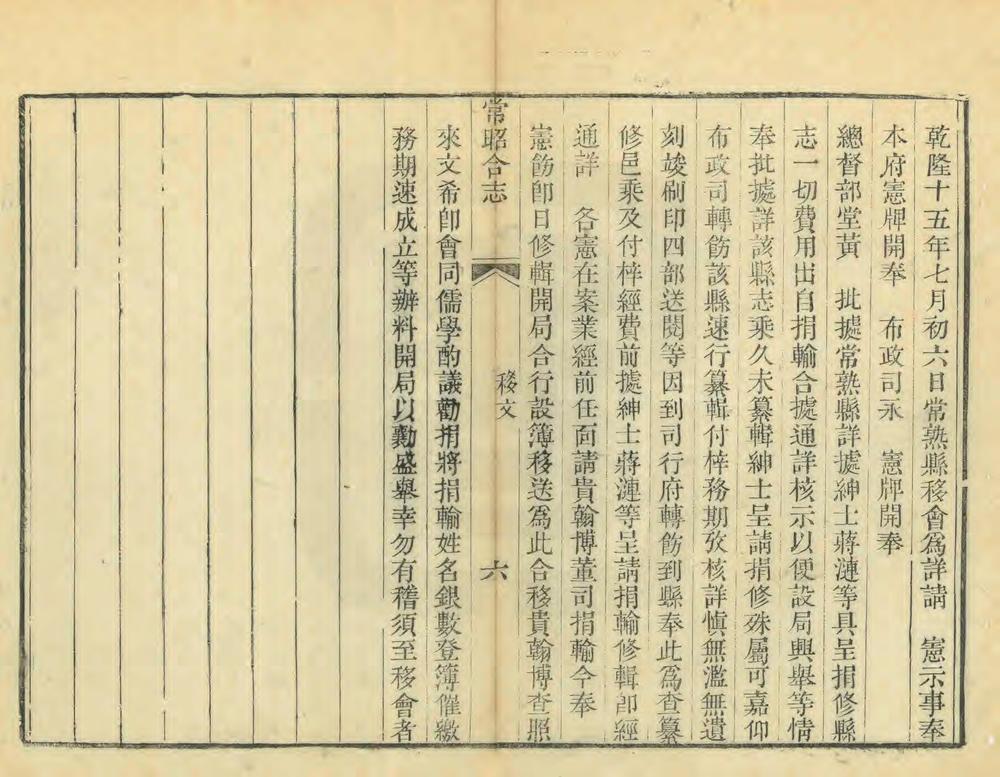 乾隆十五年七月初六日常熟縣移會爲詳請　憲示事奉
本府憲牌開奉　布政司永　憲牌開奉
總督部堂黃　批據常熟縣詳據紳士蔣漣等具呈捐修縣
志一切費用出自捐輸合據通詳核示以便設局興舉等情
奉批據詳該縣志乘久未纂輯紳士呈請捐修殊屬可嘉仰
布政司轉飭該縣速行纂輯付梓務期攷核詳慎無濫無遺
刻竣刷印四部送閱等因到司行府轉飭到縣奉此爲查纂
修邑乘及付梓經費前據紳士蔣漣等呈請捐輸修輯卽經
通詳　各憲在案業經前任面請貴翰博董司捐輸今奉
憲飭卽日修輯開局合行設簿移送爲此合移貴翰博查照
常昭合志　移文　六
來文希卽會同儒學酌議勸捐將捐輸姓名銀數登簿催繳
務期速成立等辦料開局以勷盛舉幸勿有稽須至移會者